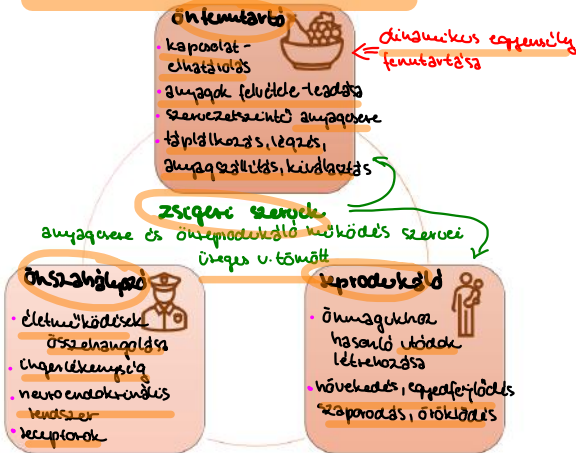 önfenntartó
• kapcsolat-
elhatárolás
• anyagok felvétele-leadása
• szervezetszintű anyagcsere
• táplálkozás, légzés,
anyagszállítás, kiválasztás
dinamikus egyensúly
fenntartása
zsigeri szervek
anyagcsere és önreprodukáló működés szervei
üreges v. tömött
önszabályozó
• életműködések
összehangolása
• ingerlékenység
• neuroendokrinális
rendszer
• receptorok
reprodukáló
• önmagukhoz
hasonló utódok
létrehozása
• növekedés, egyedfejlődés
szaporodás, öröklődés